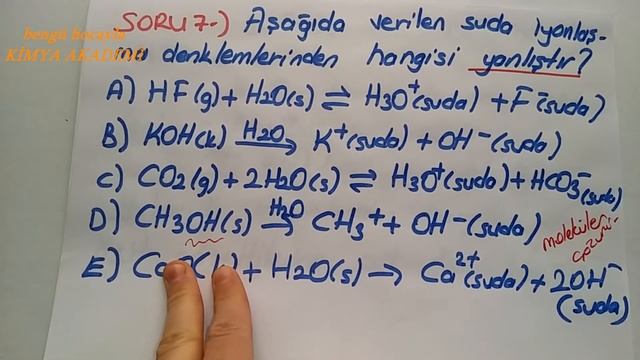 bengü hocayla
KİMYA AKADEMİ
SORU 7-) Aşağıda verilen suda iyonlaş-
ma denklemlerinden hangisi yanlıştır?
A) HF(g) + H2O(s) ⇌ H3O+(suda) + F-(suda)
B) KOH(k) H2O→ K+(suda) + OH-(suda)
C) CO2(g) + 2H2O(s) ⇌ H3O+(suda) + HCO3-(suda)
D) CH3OH(s) H2O→ CH3+ + OH-(suda)
moleküler
E) + H2O(s) → Ca2+(suda) + 2OH-
(suda)